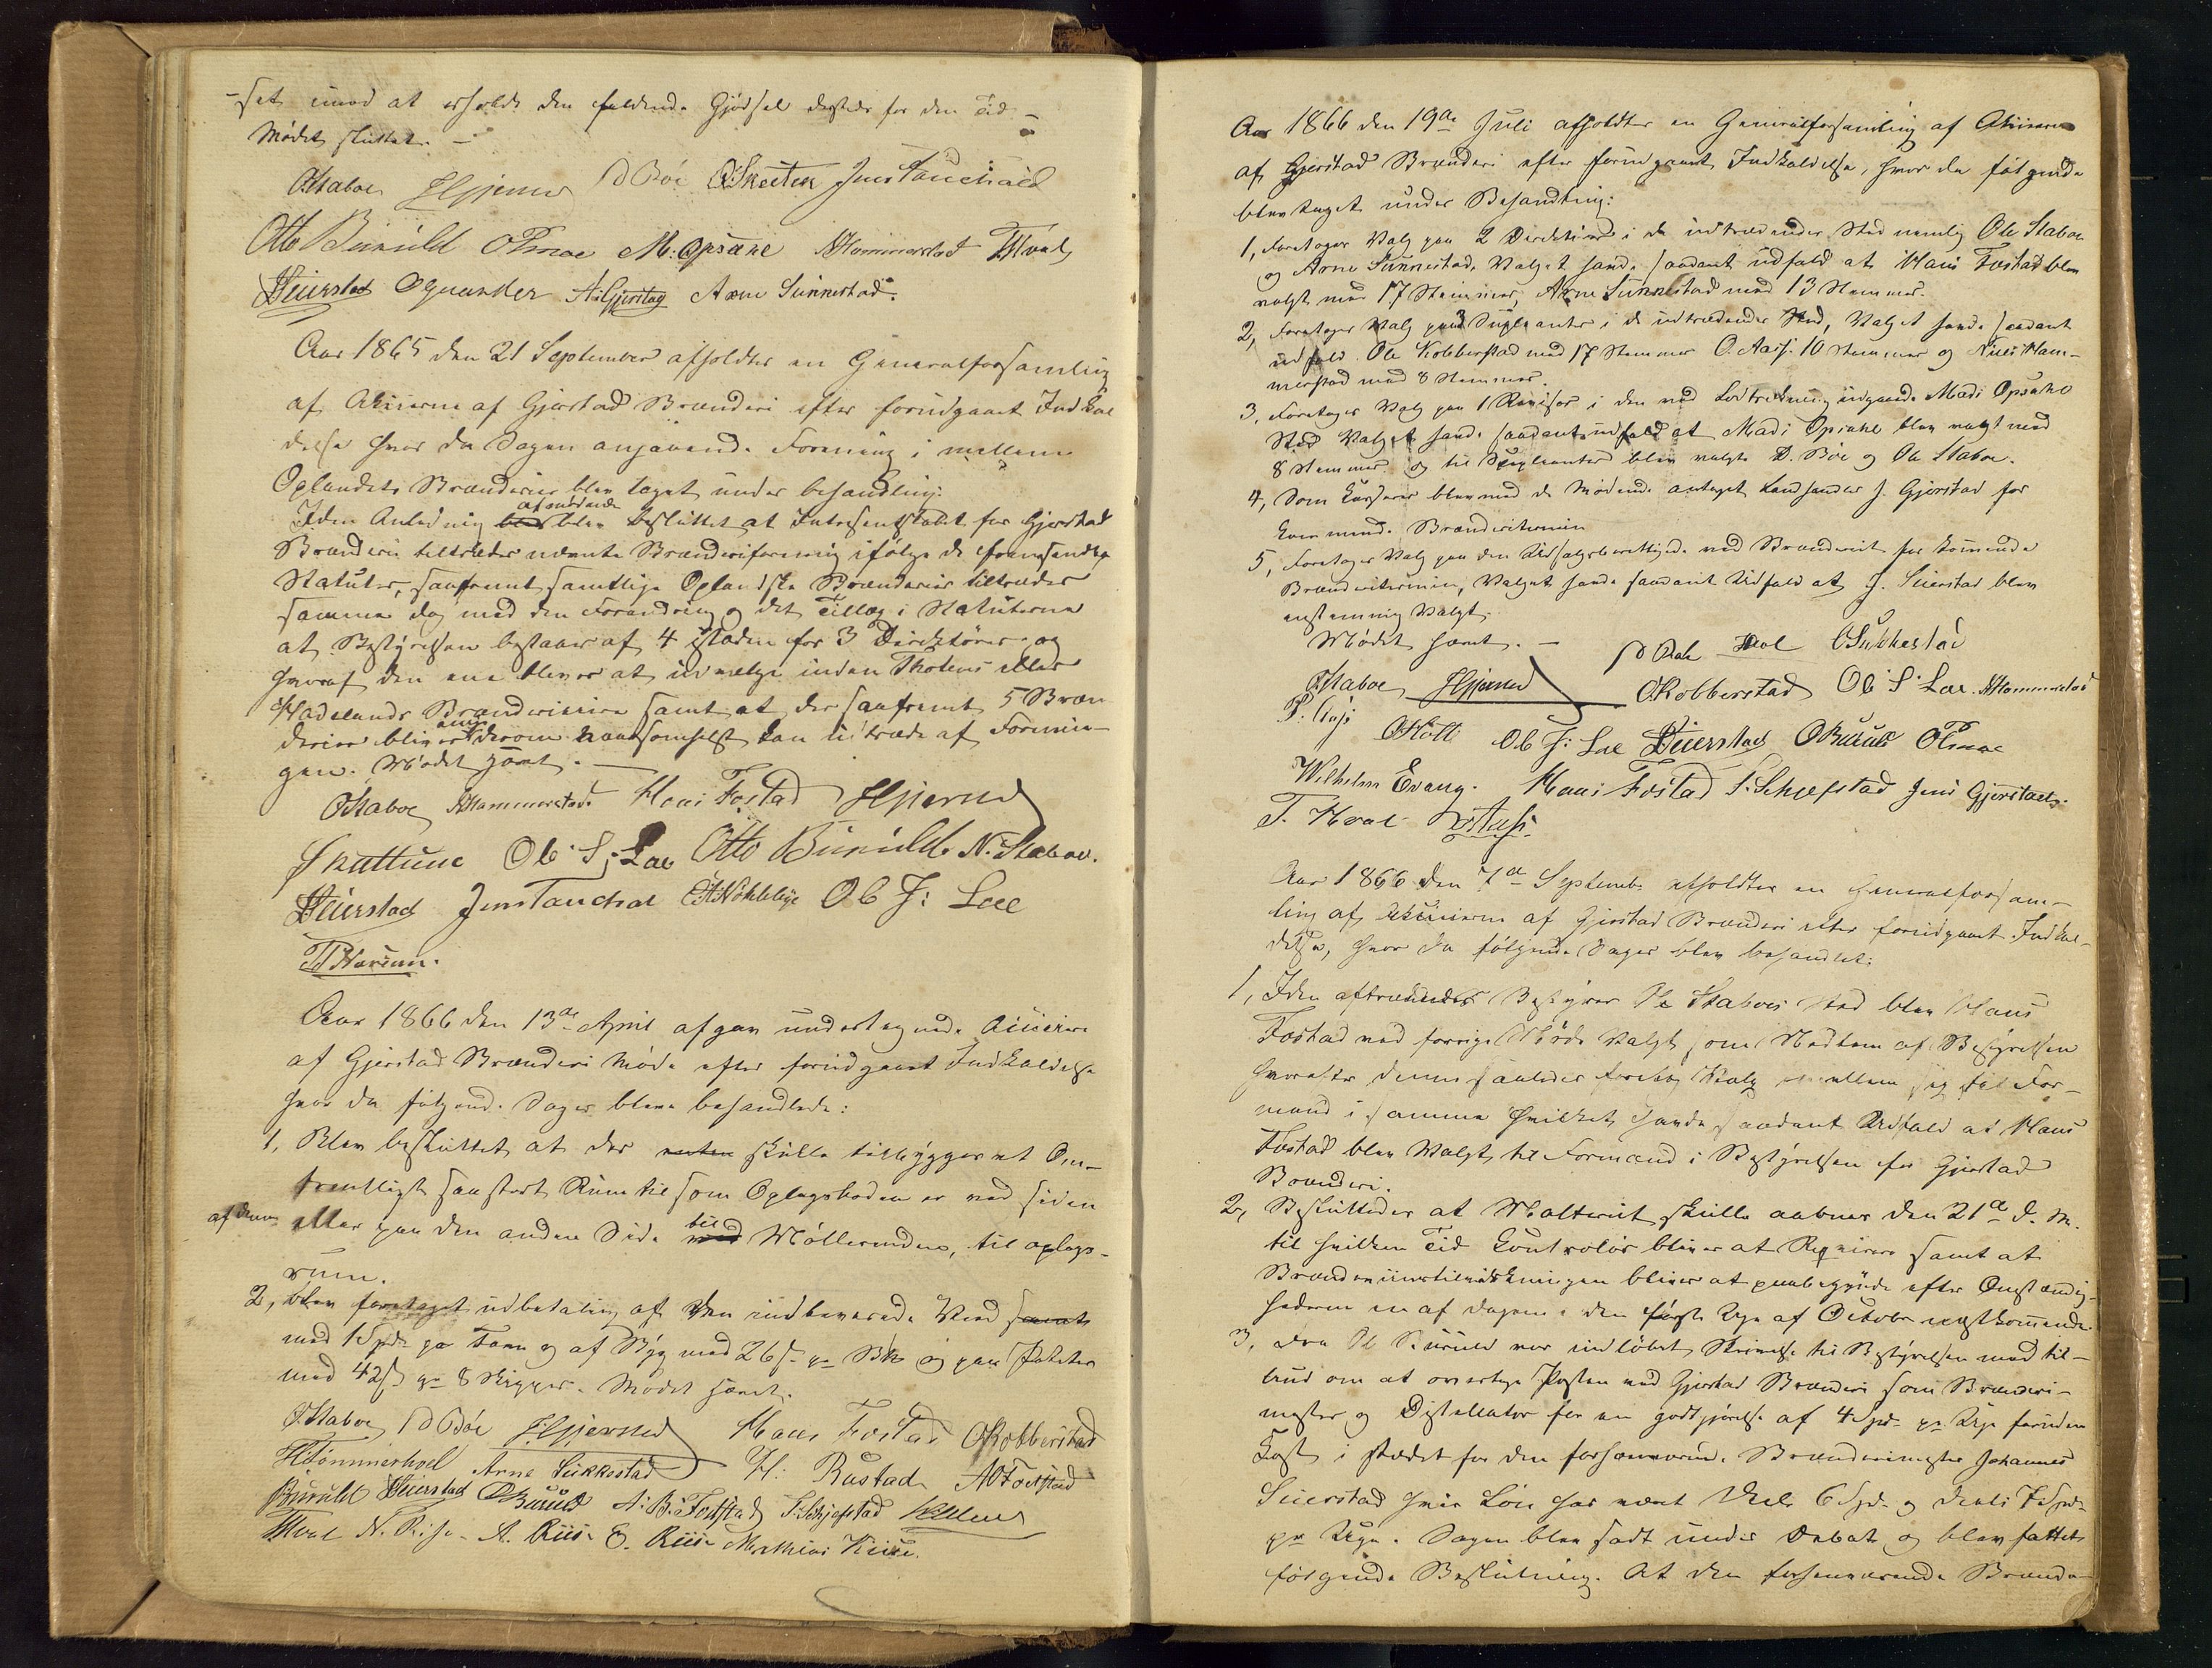 -set imod at erholde den faldende Gjödsel derstæds for den Tid.
Mödet sluttet. -
OStaboe HGjerne D Böe OSkeeten Jens Tandhaid
Otto Buruld OPmoe M. Opsahl NHammerstad THval
HSeierstad OQuarder A:Gjerstag Arne Sünnestad.
Aar 1865 den 21 September afholdtes en Generalforsamling
af Actierne af Gjerstad Brænderi efter forudgaaet Indkal
delse hvor da Sagen angaaende Forening i mellem
Oplandets Brænderier blev taget under behandling:
Iden Anledning afmödende blev besluttet at Intresentskabet for Gjerstad
Brænderi tiltræder nævnte Brænderiforening ifölge de fremsendte
Statuter, saafremt samtlige Oplandske Brænderier tiltræder
samme dog med den Forandring og det Tillæg i Statuterne
at Bestyrelsen bestaar af 4 isteden for 3 Direktörer og
hvoraf den ene bliver at udvælge inden Thotens eller
Hadelands Brænderierne samt at der saafremt 5 Bræn
derier bliver enig derom naarsomhelst kan udtræde af Forenin-
gen. Mödet hævet. -
OStaboe NHammerstad. Hans Fostad HGjerne
Skattum Ole S: Lae Otto Buruld N. Staboe.
HSeierstad Jens Tandhal CANökleby Ole J: Lae
THarum.
Aar 1866 den 13de April afgav undertegnede Actierer
af Gjerstad Brænderi Möde efter forudgaaet Indkaldelse
hvor da fölgende Sager bleve behandlede:
1, Blev besluttet at der skulle tilbygges et Om-
trentligt saa stort Rum til som Oplagsboden er ved siden
af denne eller paa den anden Side til Möllerenden, til oplags-
rum.
2, blev foretaget udbetaling af den indleverede Ved
med 1 Spd pr Favn og af Byg med 26 s. pr Bk og paa Poteter
med 42 s pr 8 Skjepper. Mödet hævet.
OStaboe D Böe HGjerne Hans Fostad OKobberstad
HTömmerhoel Arne Sükkestad H: Rustad A O Fodstad
Buruld HSeierstad OBuruld A: B: Fodstad S: Schjefstad
THval N. Riise A. Riise E. Riise Mathias Kiise.
Aar 1866 den 19de Juli afholdtes en Generalforsamling af Actierne
af Gjerstad Brænderi efter forudgaaet Indkaldelse, hvor da fölgende
blev taget under Behandling:
1, Foretoges Valg paa 2 Direktörer i de udtrædendes Sted nemlig Ole Staboe
og Arne Sünnestad, Valget havde saadant udfald at Hans Fostad blev
valgt med 17 Stemmer, Arne Sünnestad med 13 Stemmer.
2, Foretoges Valg paa 3 Suppleanter i de udtrædendes Sted, Valget havde saadant
udfald. Ole Kobberstad med 17 Stemmer O. Aass. 10 Stemmer og Niels Ham-
merstad med 8 Stemmer.
3, Foretoges Valg paa 1 Revisor i den ved Lodtrekning udgaaende Madi Opsahl
Sted Valget havde saadant udfald at Madi Opsahl blev valgt med
8 Stemmer og til Suppleanter blev valgte D. Böe og Ole Staboe.
4, Som Kasserer blev med de Mödende antaget Landhandler J. Gjerstad for
kommende Brænderitermin
5, Foretoges Valg paa den Udsalgsberettigede ved Brænderiet for kommende
Brænderitermin, Valget havde saadant Udfald at J. Seierstad blev
enstemmig Valgt.
Mödet hævet. - OSukkestad
OStaboe HGjerne OKobberstad Ole S: Lae. NHammerstad
Ole J: Lae HSeierstad OBuruld OPmoe
Wilhelm Evang. Hans Fostad S: Schjefstad Jens Gjerstad.
T. Hval
Aar 1866 den 7de Septembr afholdtes en Generalforsam-
ling af Actierne af Gjerstad Brænderi efter forudgaaet Indkal-
delse, hvor da fölgende Sager blev behandlet:
1, Iden aftrædendes Bestyrer Ole Staboes sted blev Hans
Fostad ved forrige Möde valgt som Medlem af Bestyrelsen
hvorefter denne saaledes foretog Valg imellem sig til For-
mand i samme hvilket havde saadant Udfald at Hans
Fostad blev Valgt til Formand i Bestyrelsen for Gjerstad
Brænderi.
2, Besluttedes at Malteriet skulle aabnes den 21de d. M.
til hvilken Tid Controlör bliver at Reqvirere samt at
Brændeviinstilvirkningen bliver at paabegynde efter Omstændig-
hederne en af Dagene i den förste Uge af October næstkommende.
3, Fra Ole Buruld var indlöbet Skrivelse til Bestyrelsen med til-
bud om at overtage Posten ved Gjerstad Brænderi som Brænderi-
mester og Distellatör for en godtgjörelse af 4 Spd. pr Uge foruden
Kost i stedet for den forhenværende Brænderimester Johannes
Seierstad hvis Lön har været deels 6 Spd. og deels 7 Spd
pr Uge. Sagen blev sadt under Debat og blev fattet
fölgende Beslutning. At den forhenværende Brænde-